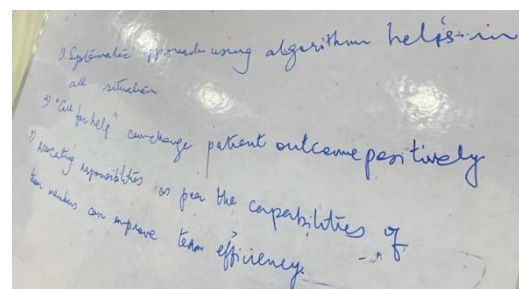 1) Systematic approach using algorithm helps in
all situation
2) "Call for help" can change patient outcome positively
3) Allocating responsibilities as peer the capabilities of
team members can improve team efficiency.